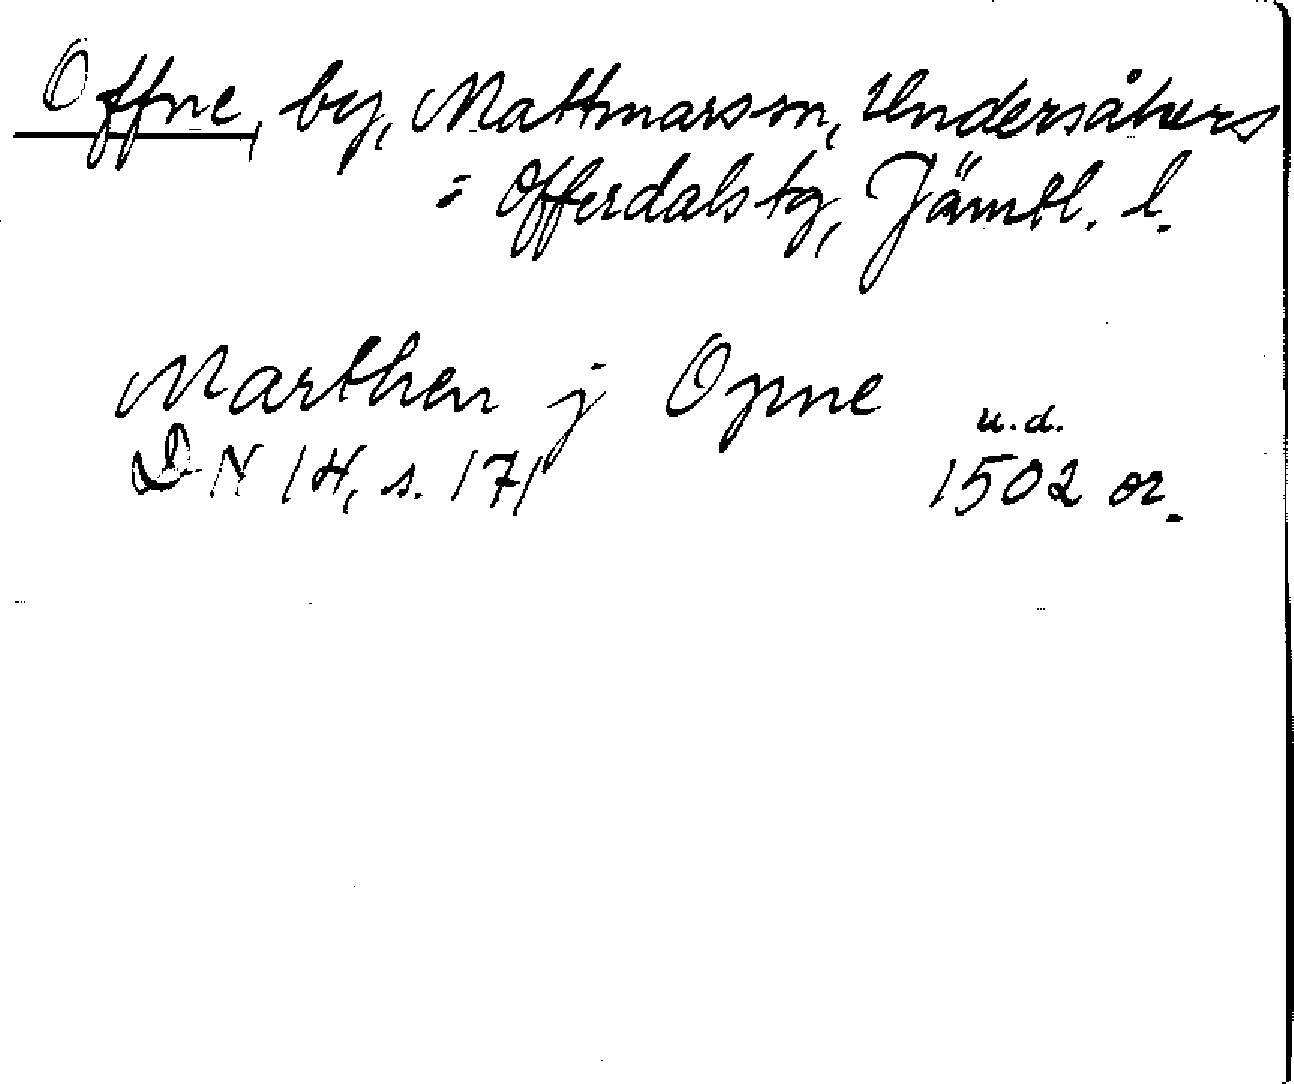 Offne, by, Mattmars sn, Undersåkers
= Offerdals tg, Jämtl. l.
Marthen j Opne
u.d.
DN 14, s. 171 1502 or.